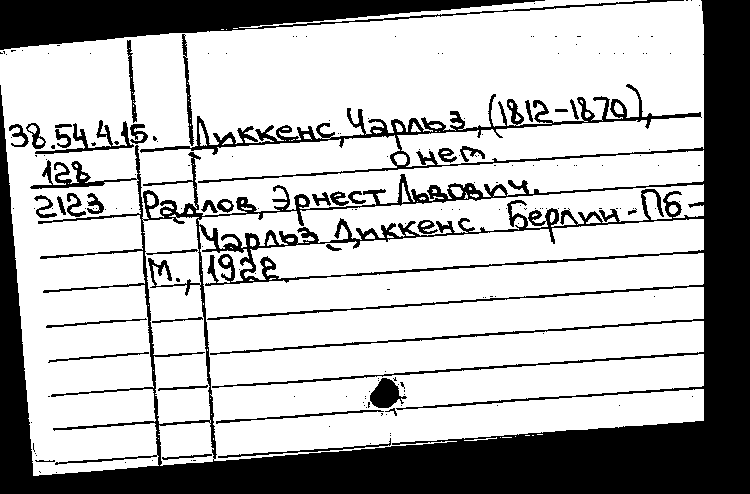 38.54.4.15. Диккенс, Чарльз, (1812-1870),
128 о нем.
2123 Радлов, Эрнест Львович.
Чарльз Диккенс. Берлин-Пб.-
М., 1922.